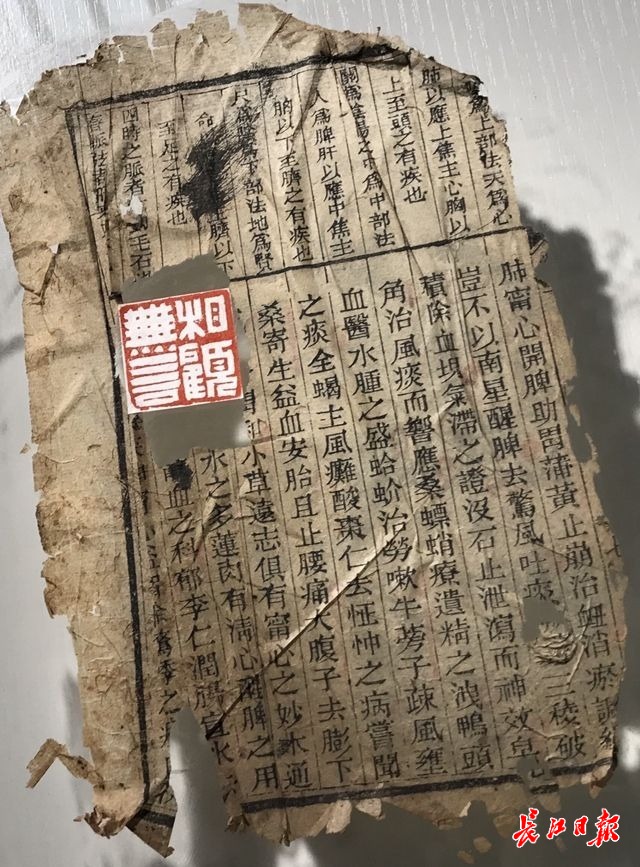 爲上部法天爲心
肺以應上焦主心胸以
上至頭之有疾也
之中爲中部法
人爲脾肝以應中焦主
胸以下至臍之有疾也
尺爲下部法地爲腎
臍以下
至足之有疾也
四時之脈者主石
肺甯心開脾助胃蒲黃止崩治衄消瘀調經
豈不以南星醒脾去驚風吐痰三稜破
積除血塊氣滯之證沒石止泄瀉而神效皂
角治風痰而響應桑螵蛸療遺精之洩鴨頭
血醫水腫之盛蛤蚧治勞嗽牛蒡子疎風壅
之痰全蝎主風癱酸棗仁去怔忡之病嘗聞
桑寄生益血安胎且止腰痛大腹子去膨下
小草遠志俱有甯心之妙木通
水之多蓮肉有淸心醒脾之用
血之科郁李仁潤腸宣水
季之
相觀
無言
長江日報